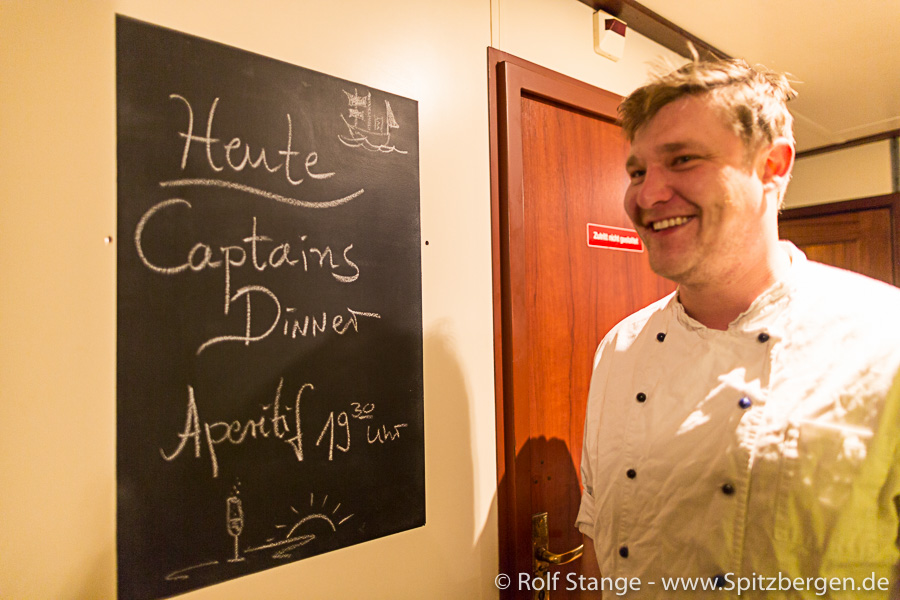 Heute
Captains
Dinner
Aperitif 19³⁰ Uhr
Zutritt nicht gestattet
© Rolf Stange - www.Spitzbergen.de